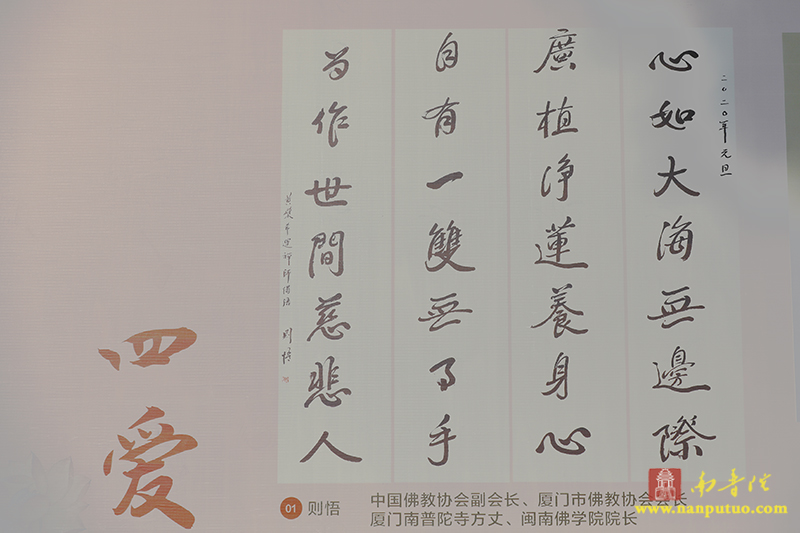 二〇二〇年元旦
心如大海無邊際
廣植淨蓮養身心
自有一雙無事手
為作世間慈悲人
黄檗希運禪師偈語 則悟
四爱
01 则悟
中国佛教协会副会长、厦门市佛教协会会长
厦门南普陀寺方丈、闽南佛学院院长
南普陀
www.nanputuo.com